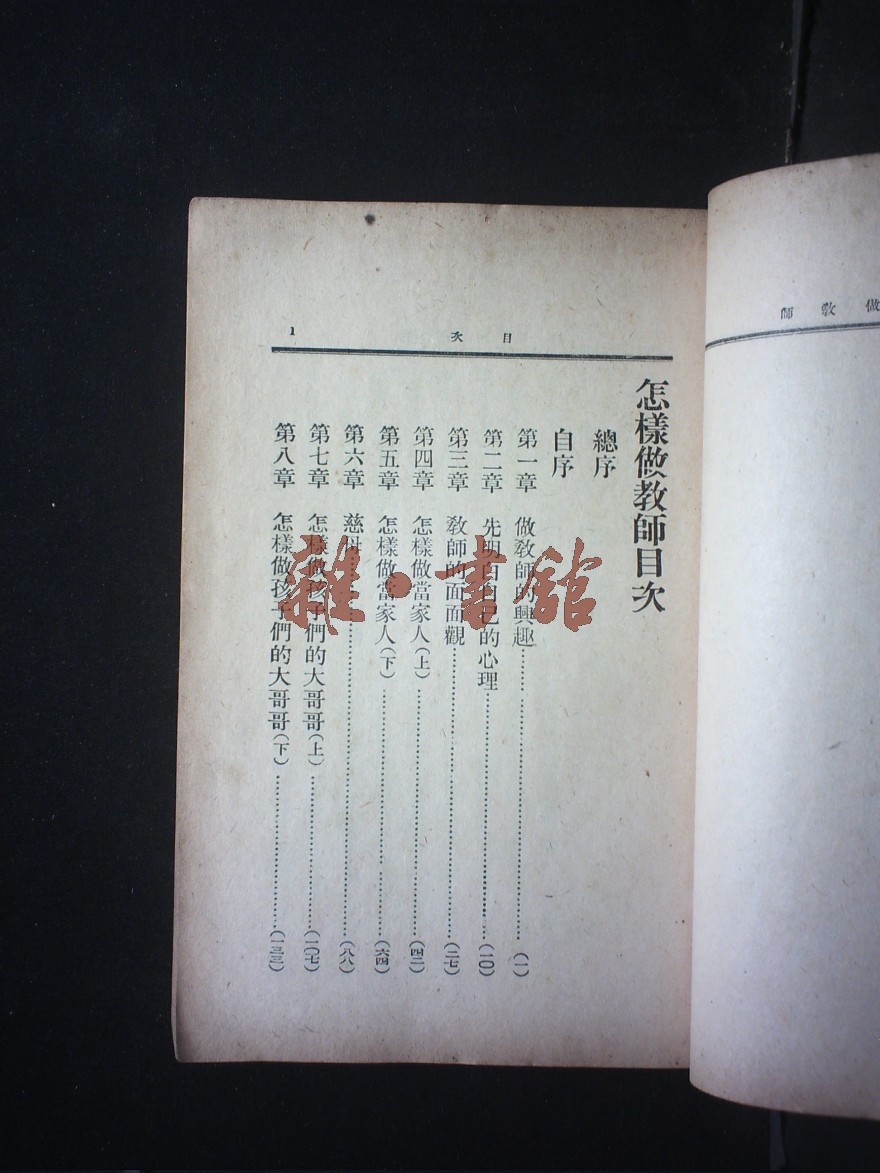 做教師
目次
1
怎樣做教師目次
總序
自序
第一章 做教師的興趣…………(一)
第二章 先明白自己的心理…………(一〇)
第三章 教師的面面觀…………(二七)
第四章 怎樣做當家人(上)…………(四二)
第五章 怎樣做當家人(下)…………(六四)
第六章 慈母…………(八八)
第七章 怎樣做孩子們的大哥哥(上)…………(一〇七)
第八章 怎樣做孩子們的大哥哥(下)…………(一三三)
雜·書館